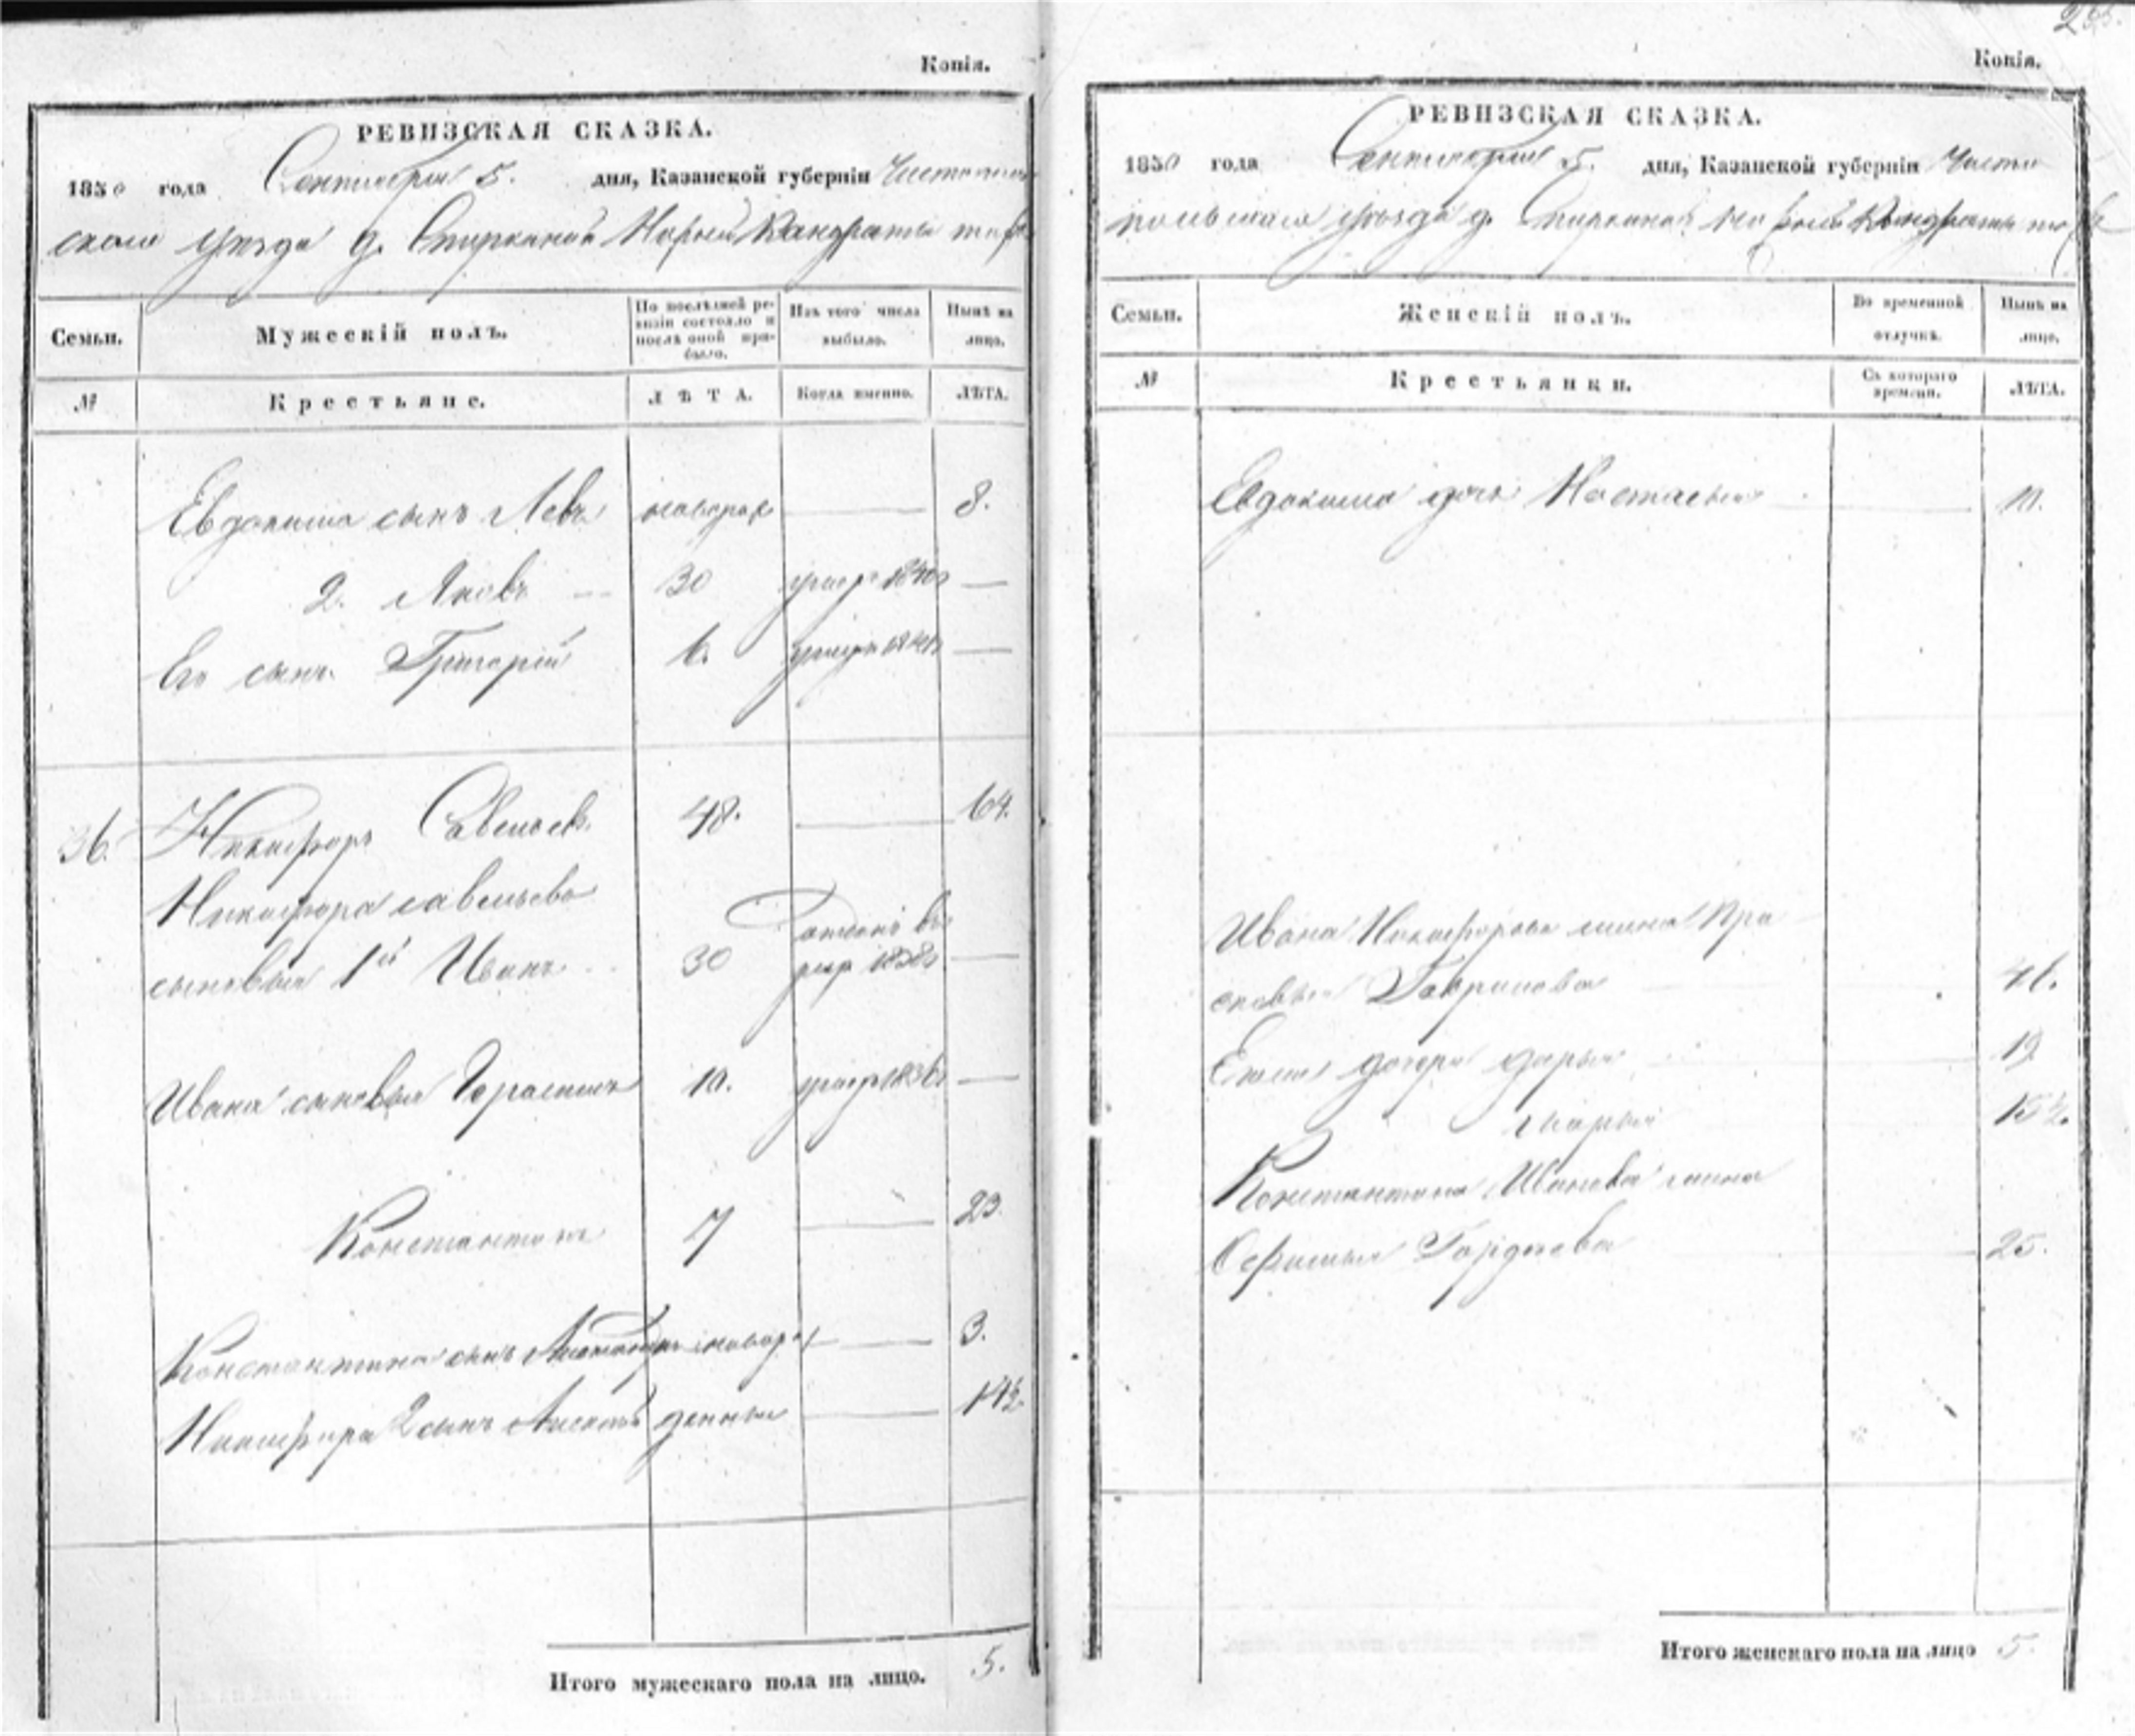 Копія.
РЕВИЗСКАЯ СКАЗКА.
1850 года Сентября 5. дня, Казанской губерніи Чистополь
скаго уезда д.
Семьи.
Мужескій полъ.
По послѣдней ре-
визіи состояло и
послѣ оной при-
было.
Изъ того числа
выбыло.
Нынѣ на
лицо.
№
Крестьяне.
ЛѢТА.
Когда именно.
ЛѢТА.
Евдокима сынъ Левъ новорож 8.
2. Яковъ 30 умер 1840
Его сынъ Григорій 6. умеръ
36. Никифоръ Савельевъ 48. 64.
Никифора Савельева
сыновья 1й Иванъ 30 отданъ въ
рекр 1838
Ивана сыновья Герасимъ 10. умер 1836
Константинъ 7 23.
Константина сынъ новор 3.
Никифора 2 сынъ 14½
Итого мужескаго пола на лицо. 5.
Копія.
РЕВИЗСКАЯ СКАЗКА.
1850 года Сентября 5. дня, Казанской губерніи Чисто
польскаго уезда д.
Семьи.
Женскій полъ.
Во временной
отлучкѣ.
Нынѣ на
лицо.
№
Крестьянки.
Съ котораго
времени.
ЛѢТА.
Евдокима дочь Настасья 11.
Ивана Никифорова жена Пра
сковья Гаврилова 46.
Ево дочери Дарья 19
Марья 15½.
Константина Иванова жена
Гордеева 25.
Итого женскаго пола на лицо 5.